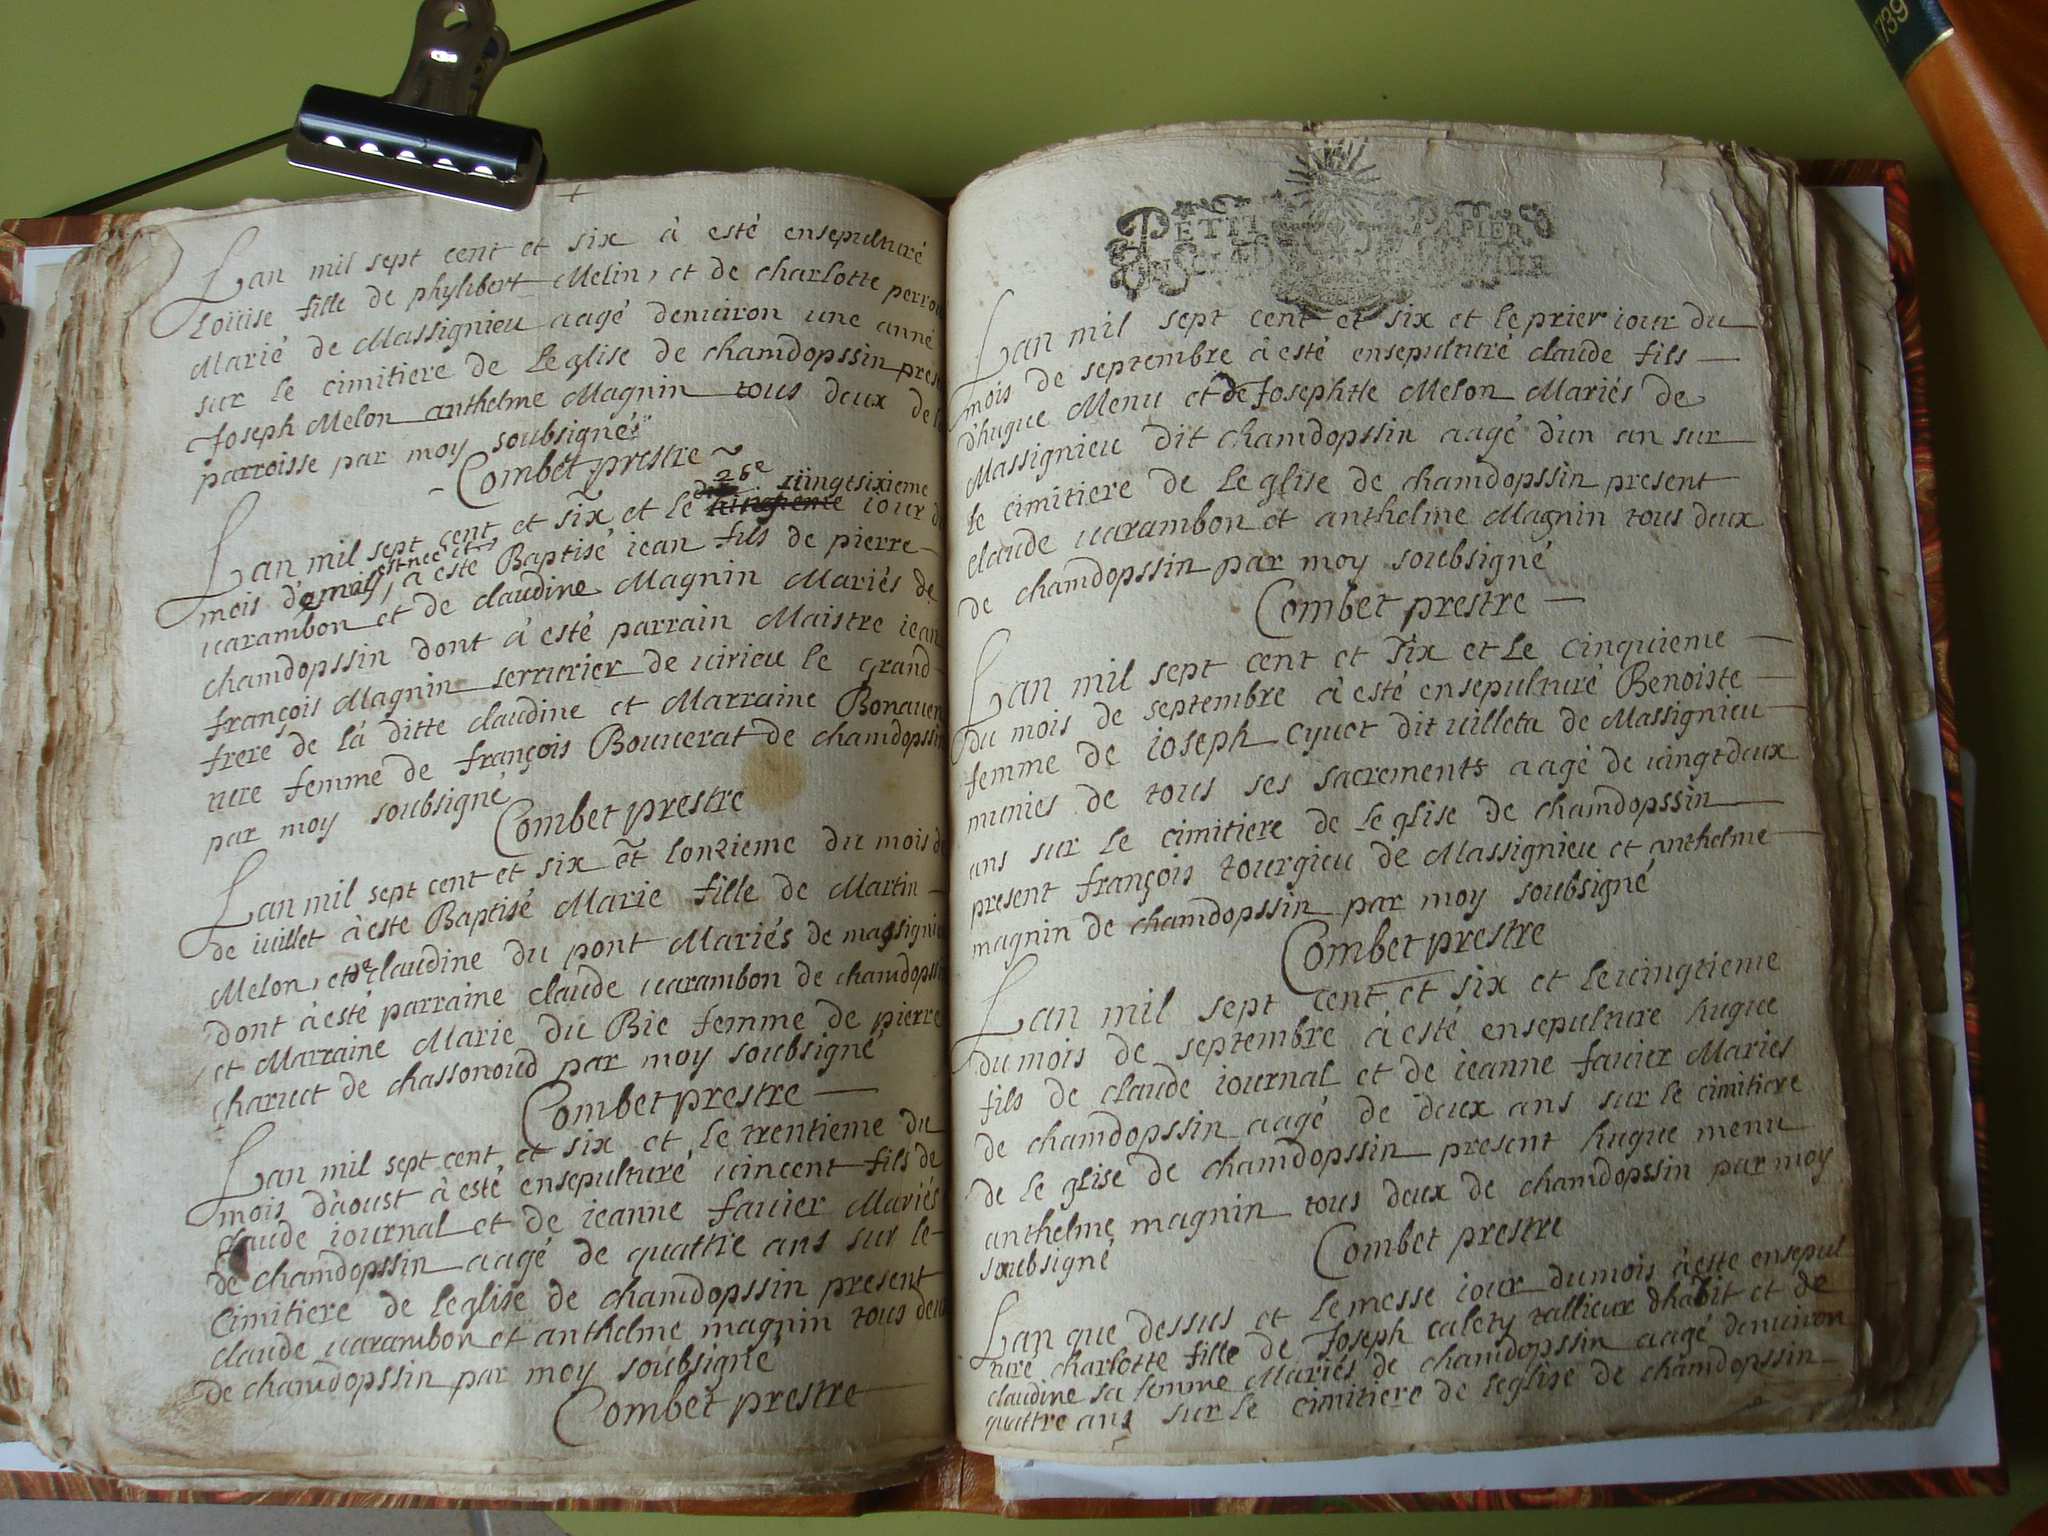 Lan mil sept cent et six à esté ensepulturé
Loüise fille de phylibert Melin, et de charlotte perrou
Marié de Massignieu aagé denuiron une anné
sur le cimitiere de Leglise de chamdopssin prese
Joseph Melon anthelme Magnin tous deux de l
parroisse par moy soubsigné
Combet prestre
26e uingtsixieme
Lan mil sept cent et six et le iour d
est née et
mois de may, à esté Baptisé iean fils de pierre
uarambon et de claudine Magnin Mariés de
chamdopssin dont à esté parrain Maistre iean
françois Magnin serrurier de uirieu le grand
frere de la ditte claudine et Marraine Bonauen
ture femme de françois Bouuerat de chamdopssin
par moy soubsigné
Combet prestre
Lan mil sept cent et six et lonzieme du mois de
de iuillet à esté Baptisé Marie fille de Martin
Melon, et de claudine du pont Mariés de massignieu
dont à esté parraine claude uarambon de chamdopssi
et Marraine Marie du Bie femme de pierre
charuet de chassonoud par moy soubsigné
Combet prestre
Lan mil sept cent et six et le trentieme du
mois d'aoust à esté ensepulturé uincent fils de
claude iournal et de ieanne fauier Mariés
de chamdopssin aagé de quattre ans sur le
Cimitiere de leglise de chamdopssin present
claude uarambon et anthelme magnin tous deux
de chamdopssin par moy soubsigné
Combet prestre
PETIT PAPIER
Lan mil sept cent et six et le prier iour du
mois de septembre à esté ensepulturé claude fils
d'hugue Menu et de Josephtle Melon Mariés de
Massignieu dit chamdopssin aagé dun an sur
le cimitiere de Leglise de chamdopssin present
claude uarambon et anthelme Magnin tous deux
de chamdopssin par moy soubsigné
Combet prestre
Lan mil sept cent et six et le cinquieme
du mois de septembre à esté ensepulturé Benoiste
femme de ioseph Cyuet dit uilleta de Massignieu
munies de tous ses sacrements aagé de uingtdeux
ans sur le cimitiere de leglise de chamdopssin
present françois tourgieu de Massignieu et anthelme
magnin de chamdopssin par moy soubsigné
Combet prestre
Lan mil sept cent et six et le uingtieme
du mois de septembre à esté ensepulture hugue
fils de claude iournal et de ieanne fauier Mariés
de chamdopssin aagé de deux ans sur le cimitiere
de leglise de chamdopssin present hugue menu
anthelme magnin tous deux de chamdopssin par moy
soubsigné
Combet prestre
Lan que dessus et le messe iour du mois à esté ensepul
turé charlotte fille de Joseph calety tallieux dhabit et de
claudine sa femme Mariés de chamdopssin aagé denuiron
quattre ans sur le cimitiere de leglise de chamdopssin
1739